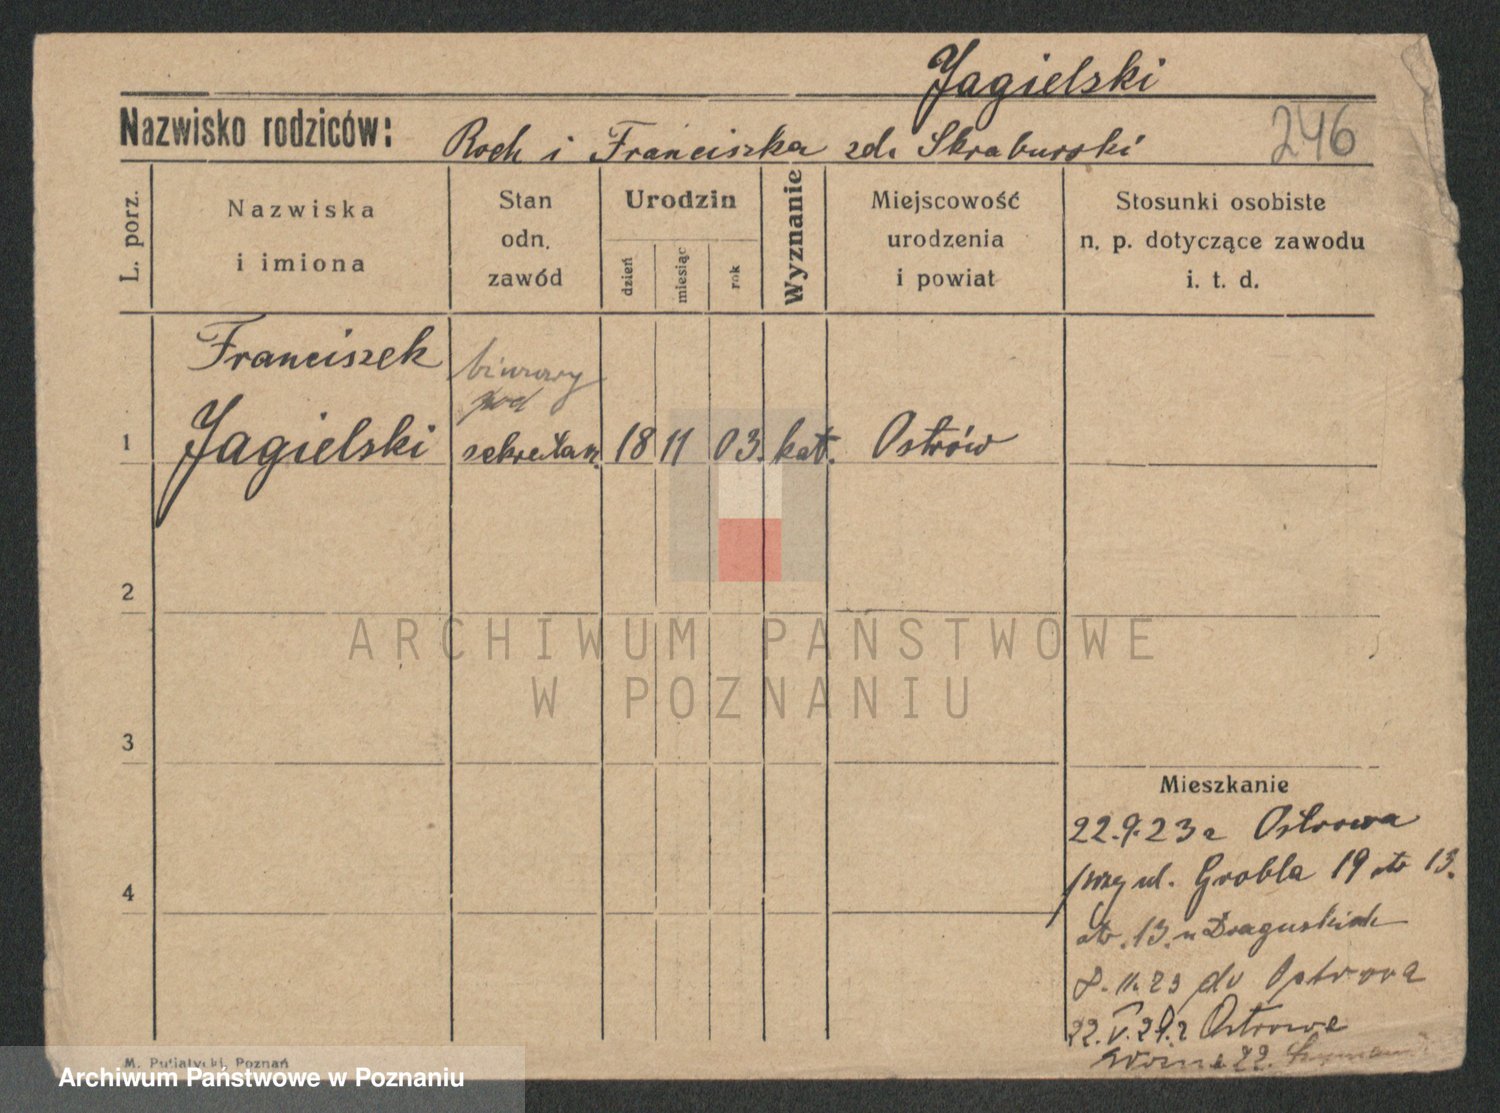 Jagielski
Nazwisko rodziców: Roch i Franciszka zd. Skraburski
246
L. porz.
Nazwiska
i imiona
Stan
odn.
zawód
Urodzin
dzień
miesiąc
rok
Wyznanie
Miejscowość
urodzenia
i powiat
Stosunki osobiste
n. p. dotyczące zawodu
i. t. d.
Franciszek
biurowy
pod
1 Jagielski sekretarz. 18 11 03. kat. Ostrów
2
ARCHIWUM PAŃSTWOWE
W POZNANIU
3
Mieszkanie
22.9.23 z Ostrowa
przy ul. Grobla 19 13.
4
13. u
11.23 do Ostrowa
22.V. Ostrowa
22.
M. Putiatycki, Poznań
Archiwum Państwowe w Poznaniu